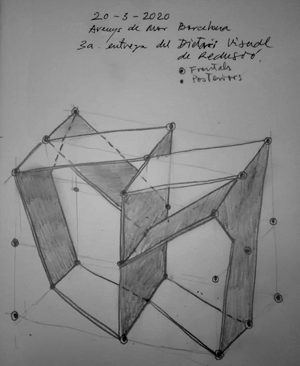 20-3-2020
Arenys de Mar Barcelona
3a. entrega del Dietari Visual
de Reclusió.
Frontals
Posteriors